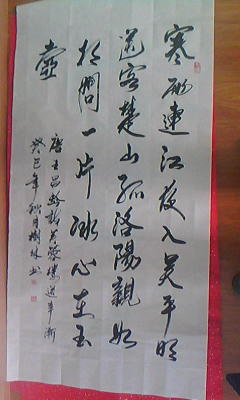 寒雨連江夜入吳平明
送客楚山孤洛陽親如
相問一片冰心在玉
壺
唐王昌齡詩芙蓉樓送辛漸
癸巳年秋月樹林書